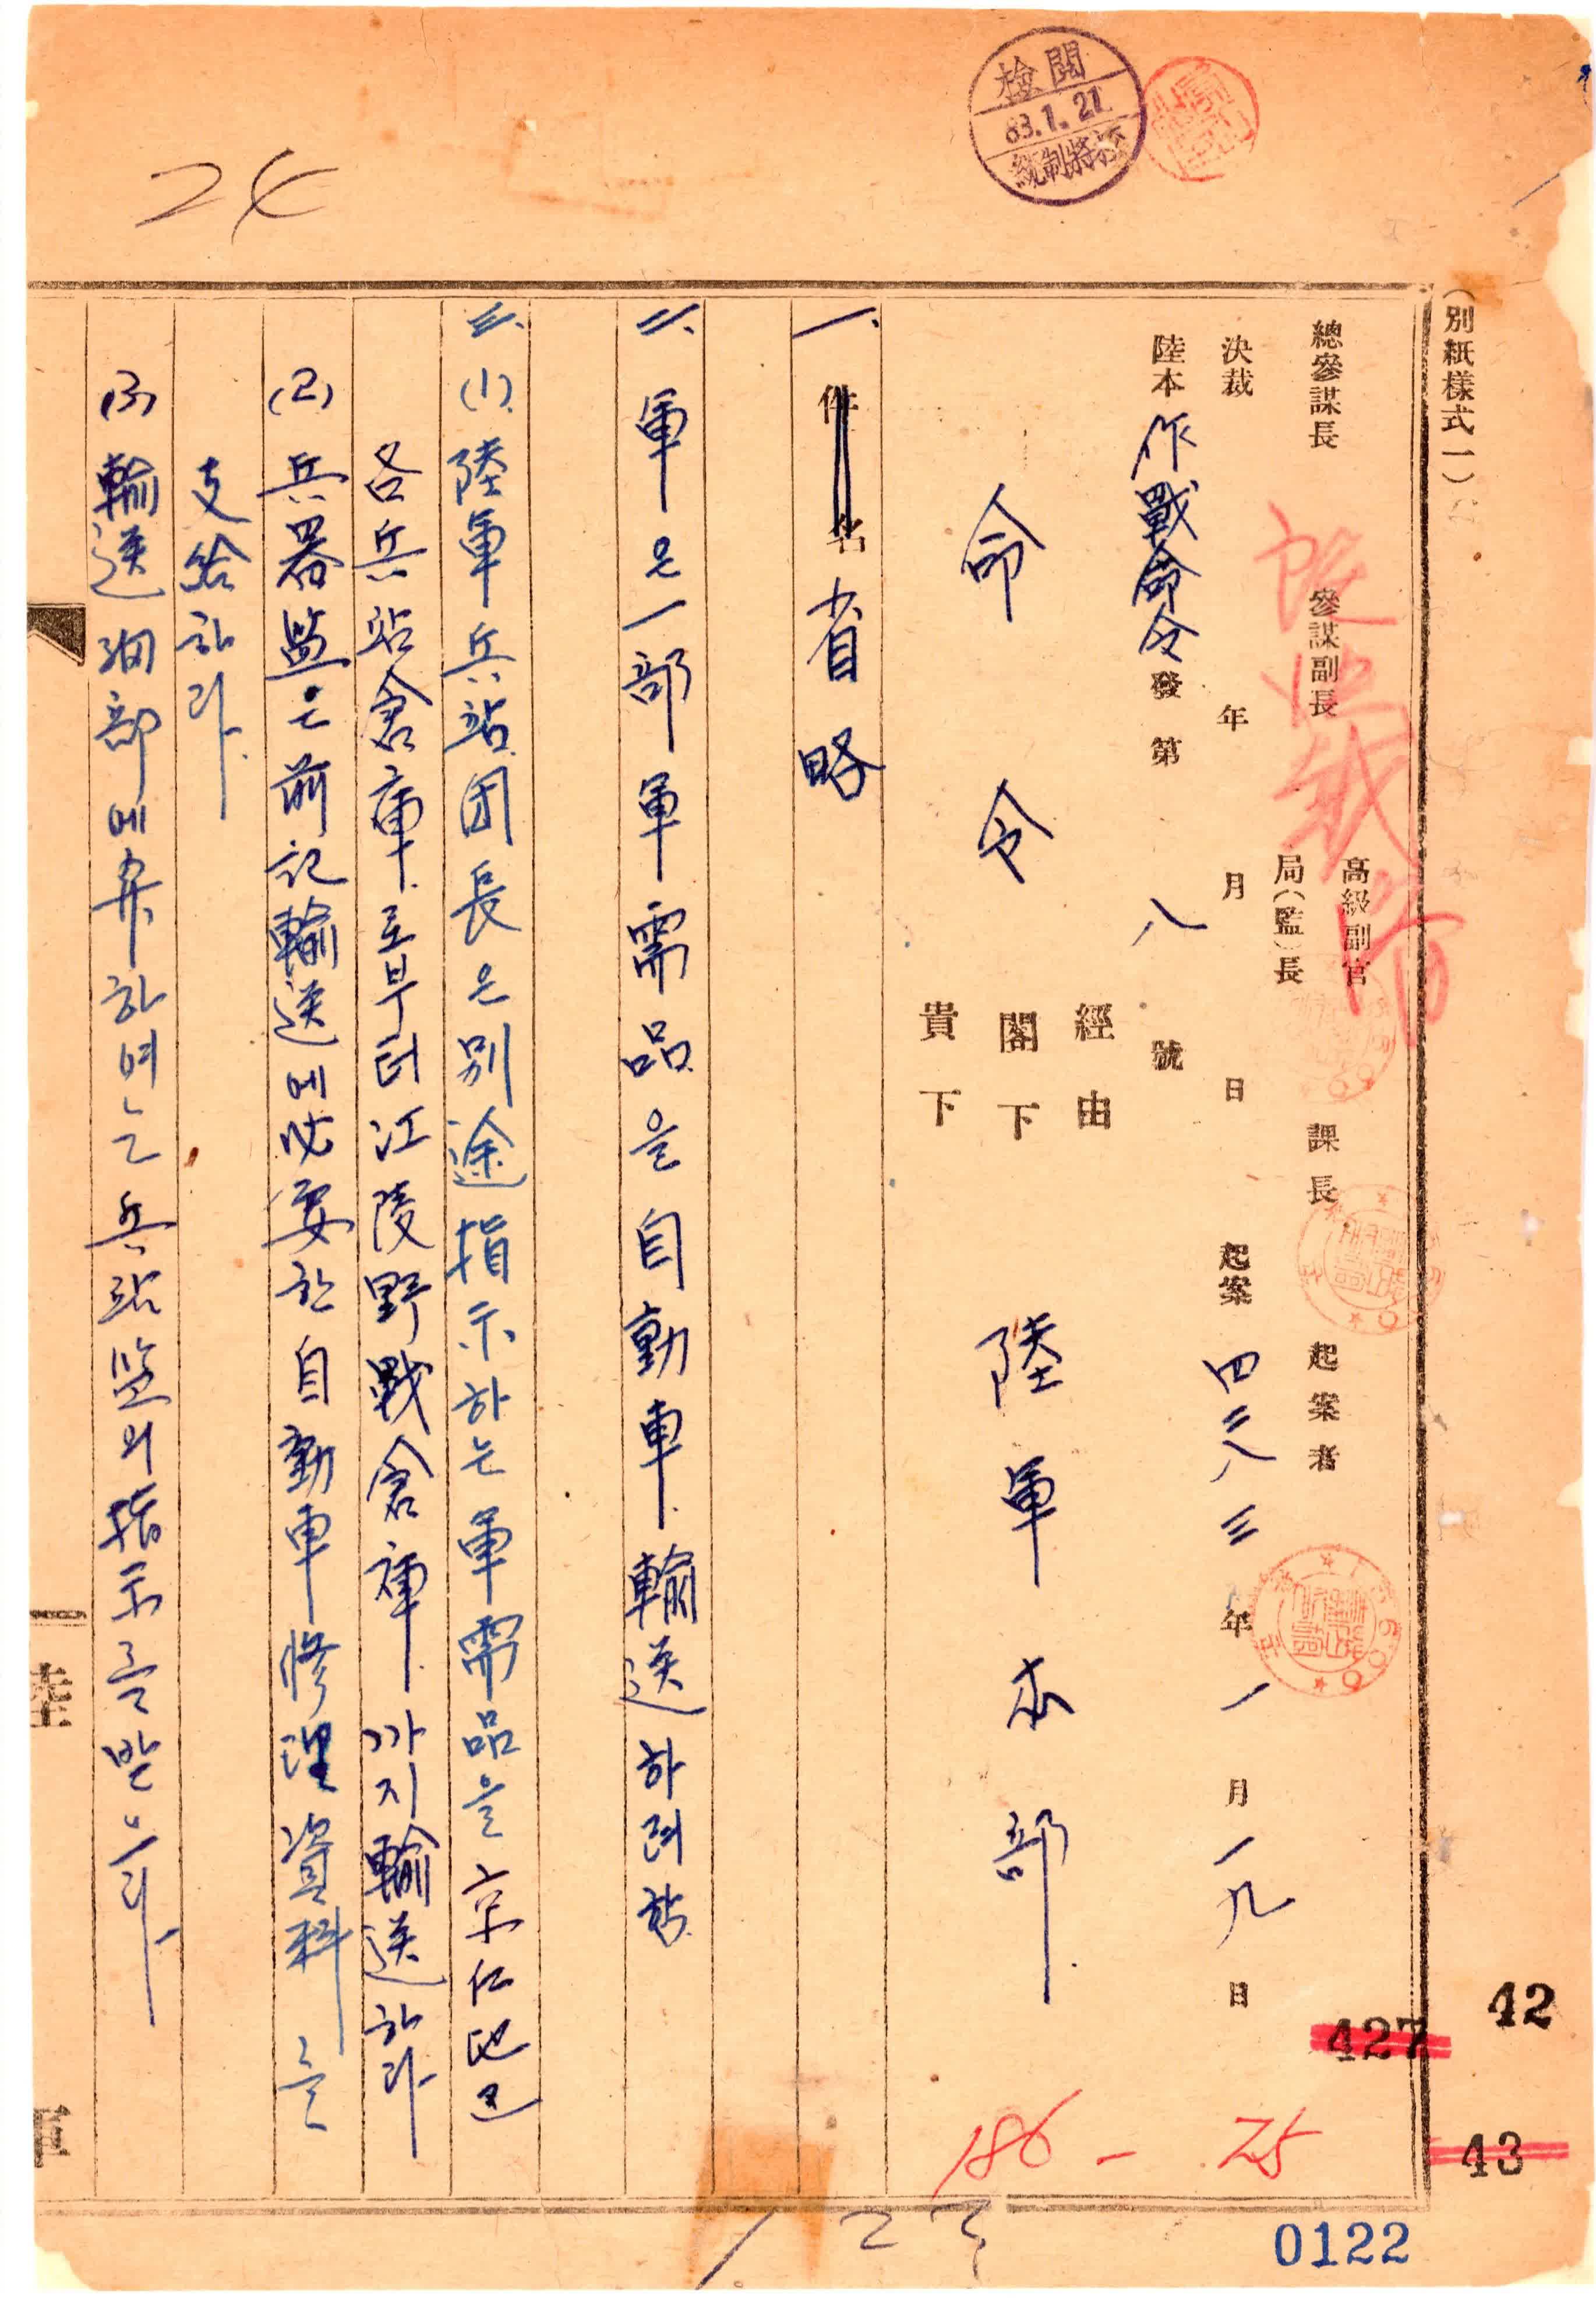 檢閱
83.1.21
統制將校
24
(別紙樣式一)
總參謀長 參謀副長 高級副官 課長 起案者
局(監)長
決裁 年 月 日 起案 四二八三年 一月 一九日
陸本 作戰命令 發 第 八 號
經由
命令 閣下 陸軍本部
貴下
一. 件名 省略
二. 軍은 一部 軍需品을 自動車輸送하려 함.
三. (1). 陸軍兵站団長은 別途指示하는 軍需品을 京仁地区
各兵站倉庫로부터 江陵野戰倉庫까지 輸送하라.
(2) 兵器監은 前記輸送에 必要한 自動車修理資料를
支給하라.
(3) 輸送細部에 關하여는 兵站監의 指示를 받으라.
陸 軍
42
427
43
186-75
123
0122